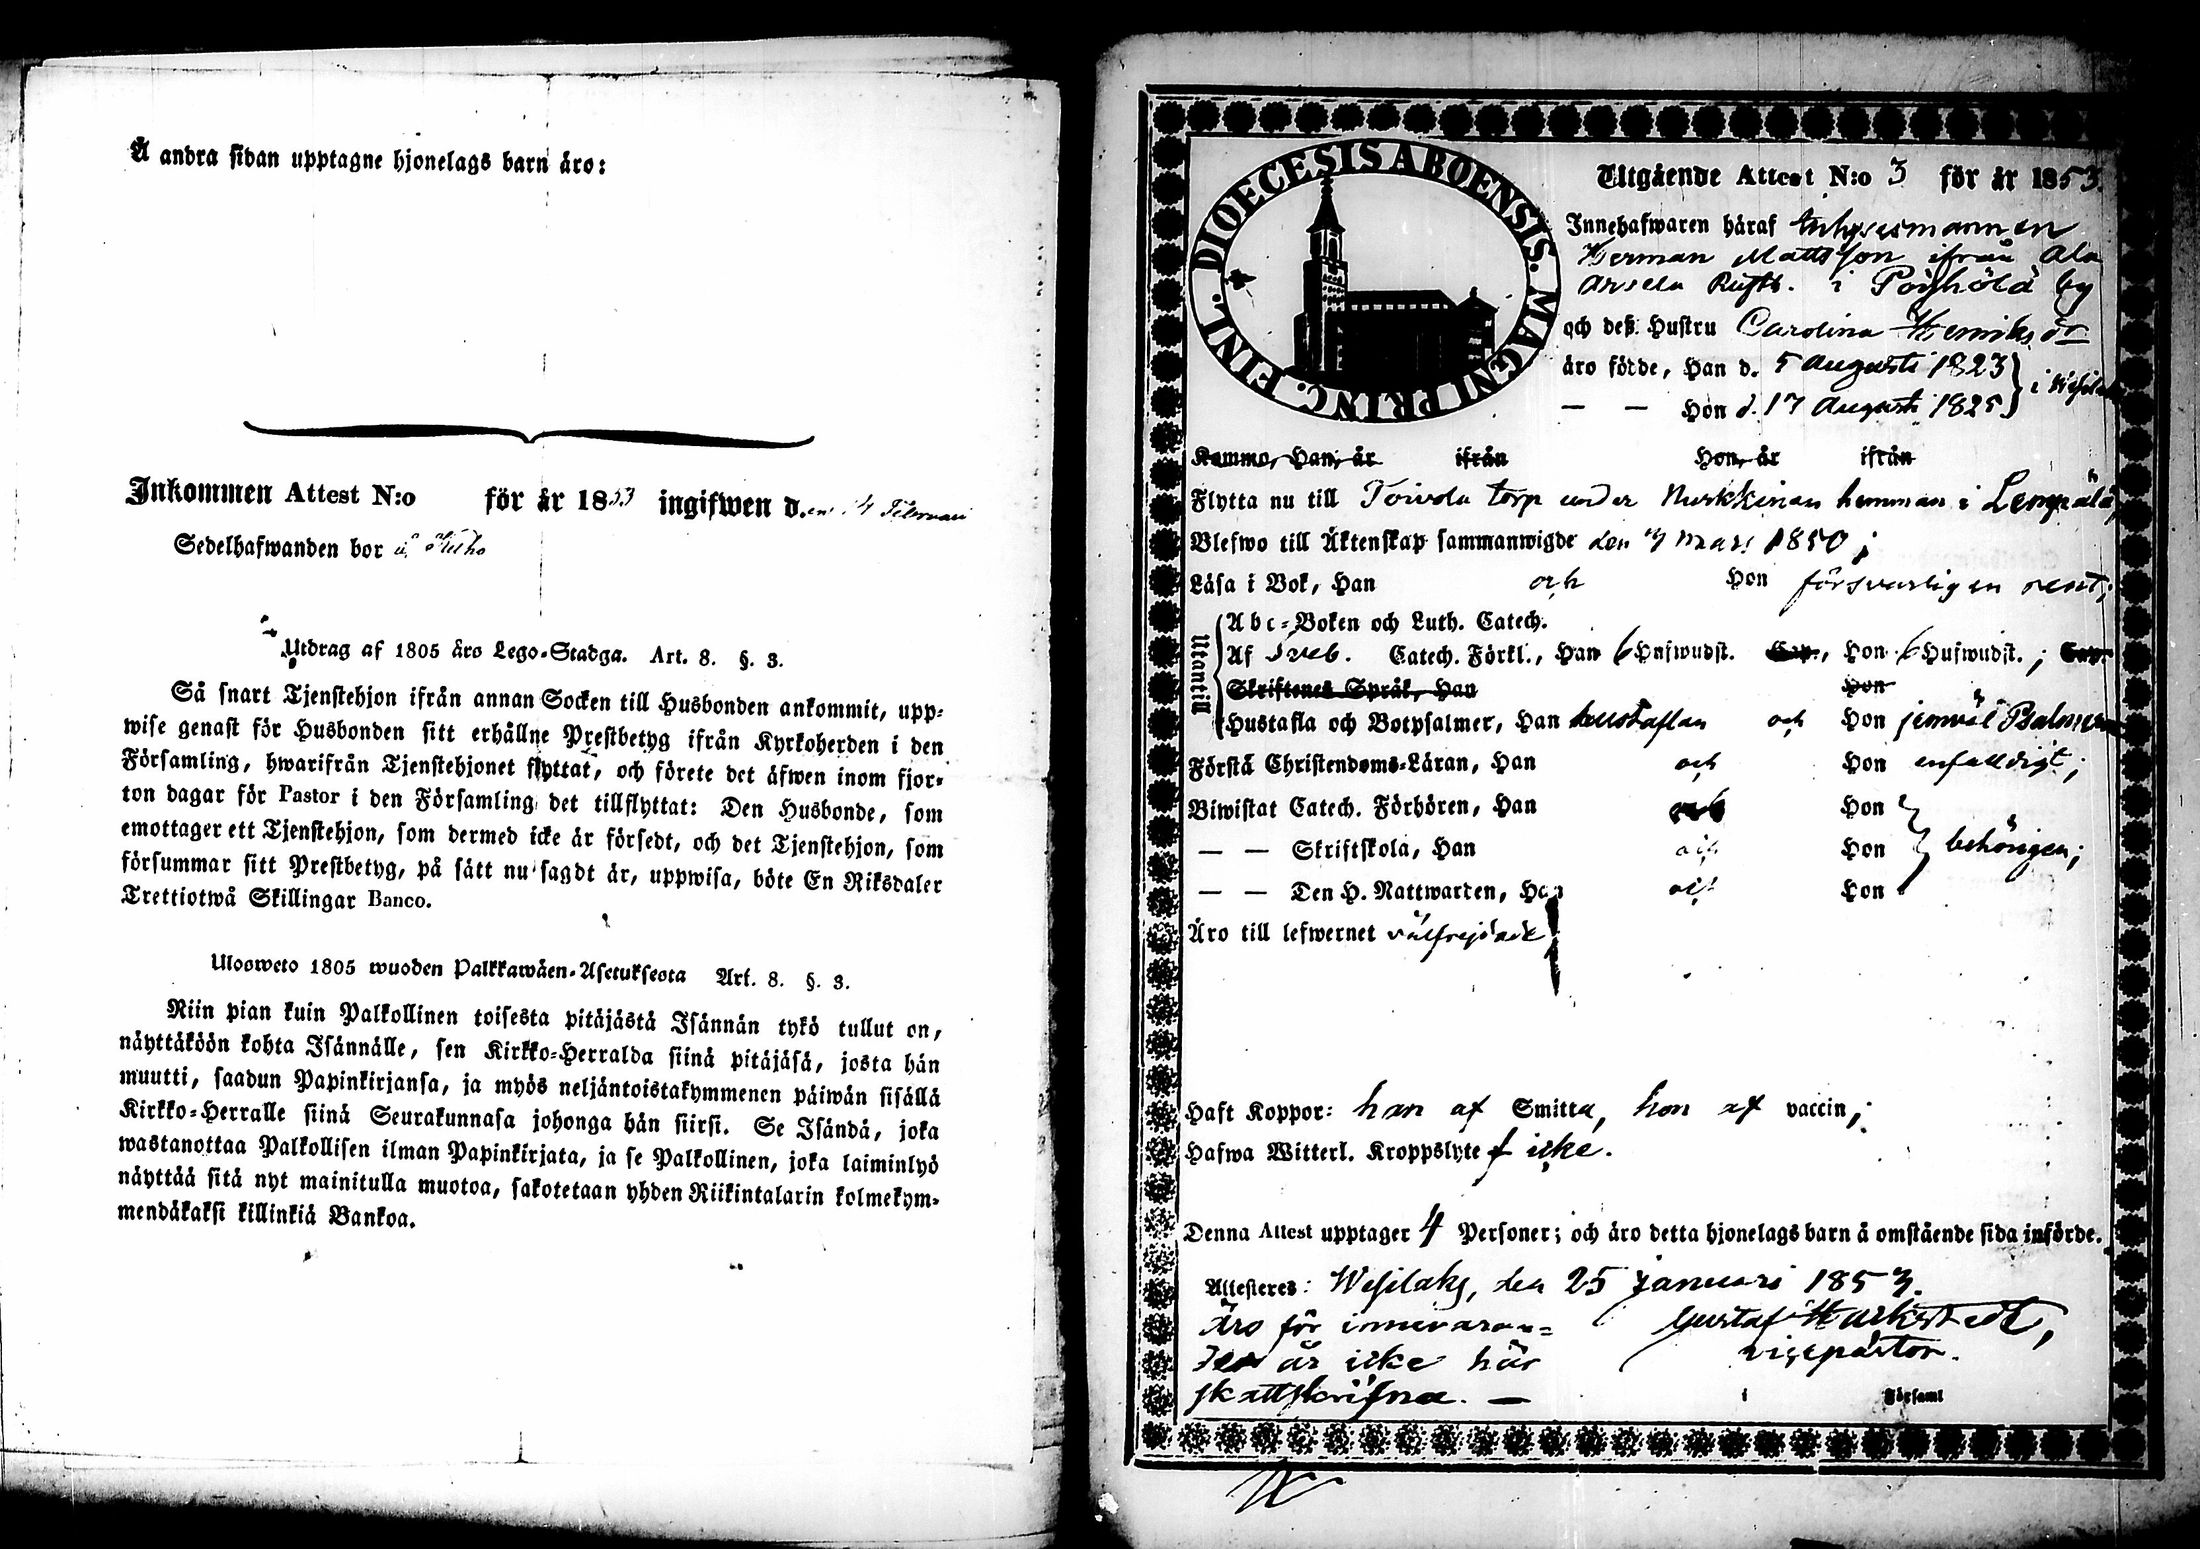 Å andra sidan upptagne hjonelags barn äro:
Inkommen Attest N:o för år 1853 ingifwen d.en 14 Februari
Sedelhafwanden bor i
Utdrag af 1805 åro Lego-Stadga. Art. 8. §. 3.
Så snart Tjenstehjon ifrån annan Socken till Husbonden ankommit, upp-
wise genast för Husbonden sitt erhållne Prestbetyg ifrån Kyrkoherden i den
Församling, hwarifrån Tjenstehjonet flyttat, och förete det äfwen inom fjor-
ton dagar för Pastor i den Församling det tillflyttat: Den Husbonde, som
emottager ett Tjenstehjon, som dermed icke är försedt, och det Tjenstehjon, som
försummar sitt Prestbetyg, på sätt nu sagdt är, uppwisa, böte En Riksdaler
Trettiotwå Skillingar Banco.
Ulosweto 1805 wuoden Palkkawäen-Asetuksesta Art. 8. §. 3.
Niin pian kuin Palkollinen toisesta pitäjästä Isännän tykö tullut on,
näyttäköön kohta Isännälle, sen Kirkko-Herralda siinä pitäjäsä, josta hän
muutti, saadun Papinkirjansa, ja myös neljäntoistakymmenen päiwän sisällä
Kirkko-Herralle siinä Seurakunnasa johonga hän siirsi. Se Isändä, joka
wastanottaa Palkollisen ilman Papinkirjata, ja se Palkollinen, joka laiminlyö
näyttää sitä nyt mainitulla muotoa, sakotetaan yhden Riikintalarin kolmekym-
mendäkaksi killinkiä Bankoa.
DIOECESIS ABOENSIS. MAGNI PRINC. FINL.
Utgående Attest N:o 3 för år 1853.
Innehafwaren häraf inhysesmannen
Herman Mattsson ifrån Ala
Arsela Rusth. i Pöyhölä by
och deß Hustru Carolina Henriksdr
äro födde, Han d. 5 Augusti 1823
— — Hon d. 17 Augusti 1825 i Wesilax
Komme, Han, år ifrån Hon, år ifrån
Flytta nu till Toivola torp under Nurkkinan hemman i Lempälä,
Blefwo till Äktenskap sammanwigde den 7 Mars 1850;
Läsa i Bok, Han och Hon försvarligen rent;
Utantill
Abc-Boken och Luth. Catech.
Af Sveb. Catech. Förkl., Han 6 Hufwudst. Cap., Hon 6 Hufwudst.; Cap.
Skriftenes Språk, Han Hon
Hustafla och Botpsalmer, Han hustaflan och Hon jemväl Psalmerna
Förstå Christendoms-Läran, Han och Hon enfaldigt;
Biwistat Catech. Förhören, Han och Hon
— — Skriftskola, Han och Hon behörigen;
— — Den H. Nattwarden, Han och Hon
Äro till lefwernet välfrejdade
Haft Koppor: han af Smitta, hon af vaccin;
Hafwa Witterl. Kroppslyte icke.
Denna Attest upptager 4 Personer; och äro detta hjonelags barn å omstående sida införde.
Attesteres: Wesilaks, den 25 Januari 1853.
Äro för innevaran=
de år icke här
skattskrifne. —
Gustaf
vicepastor.
i Församl